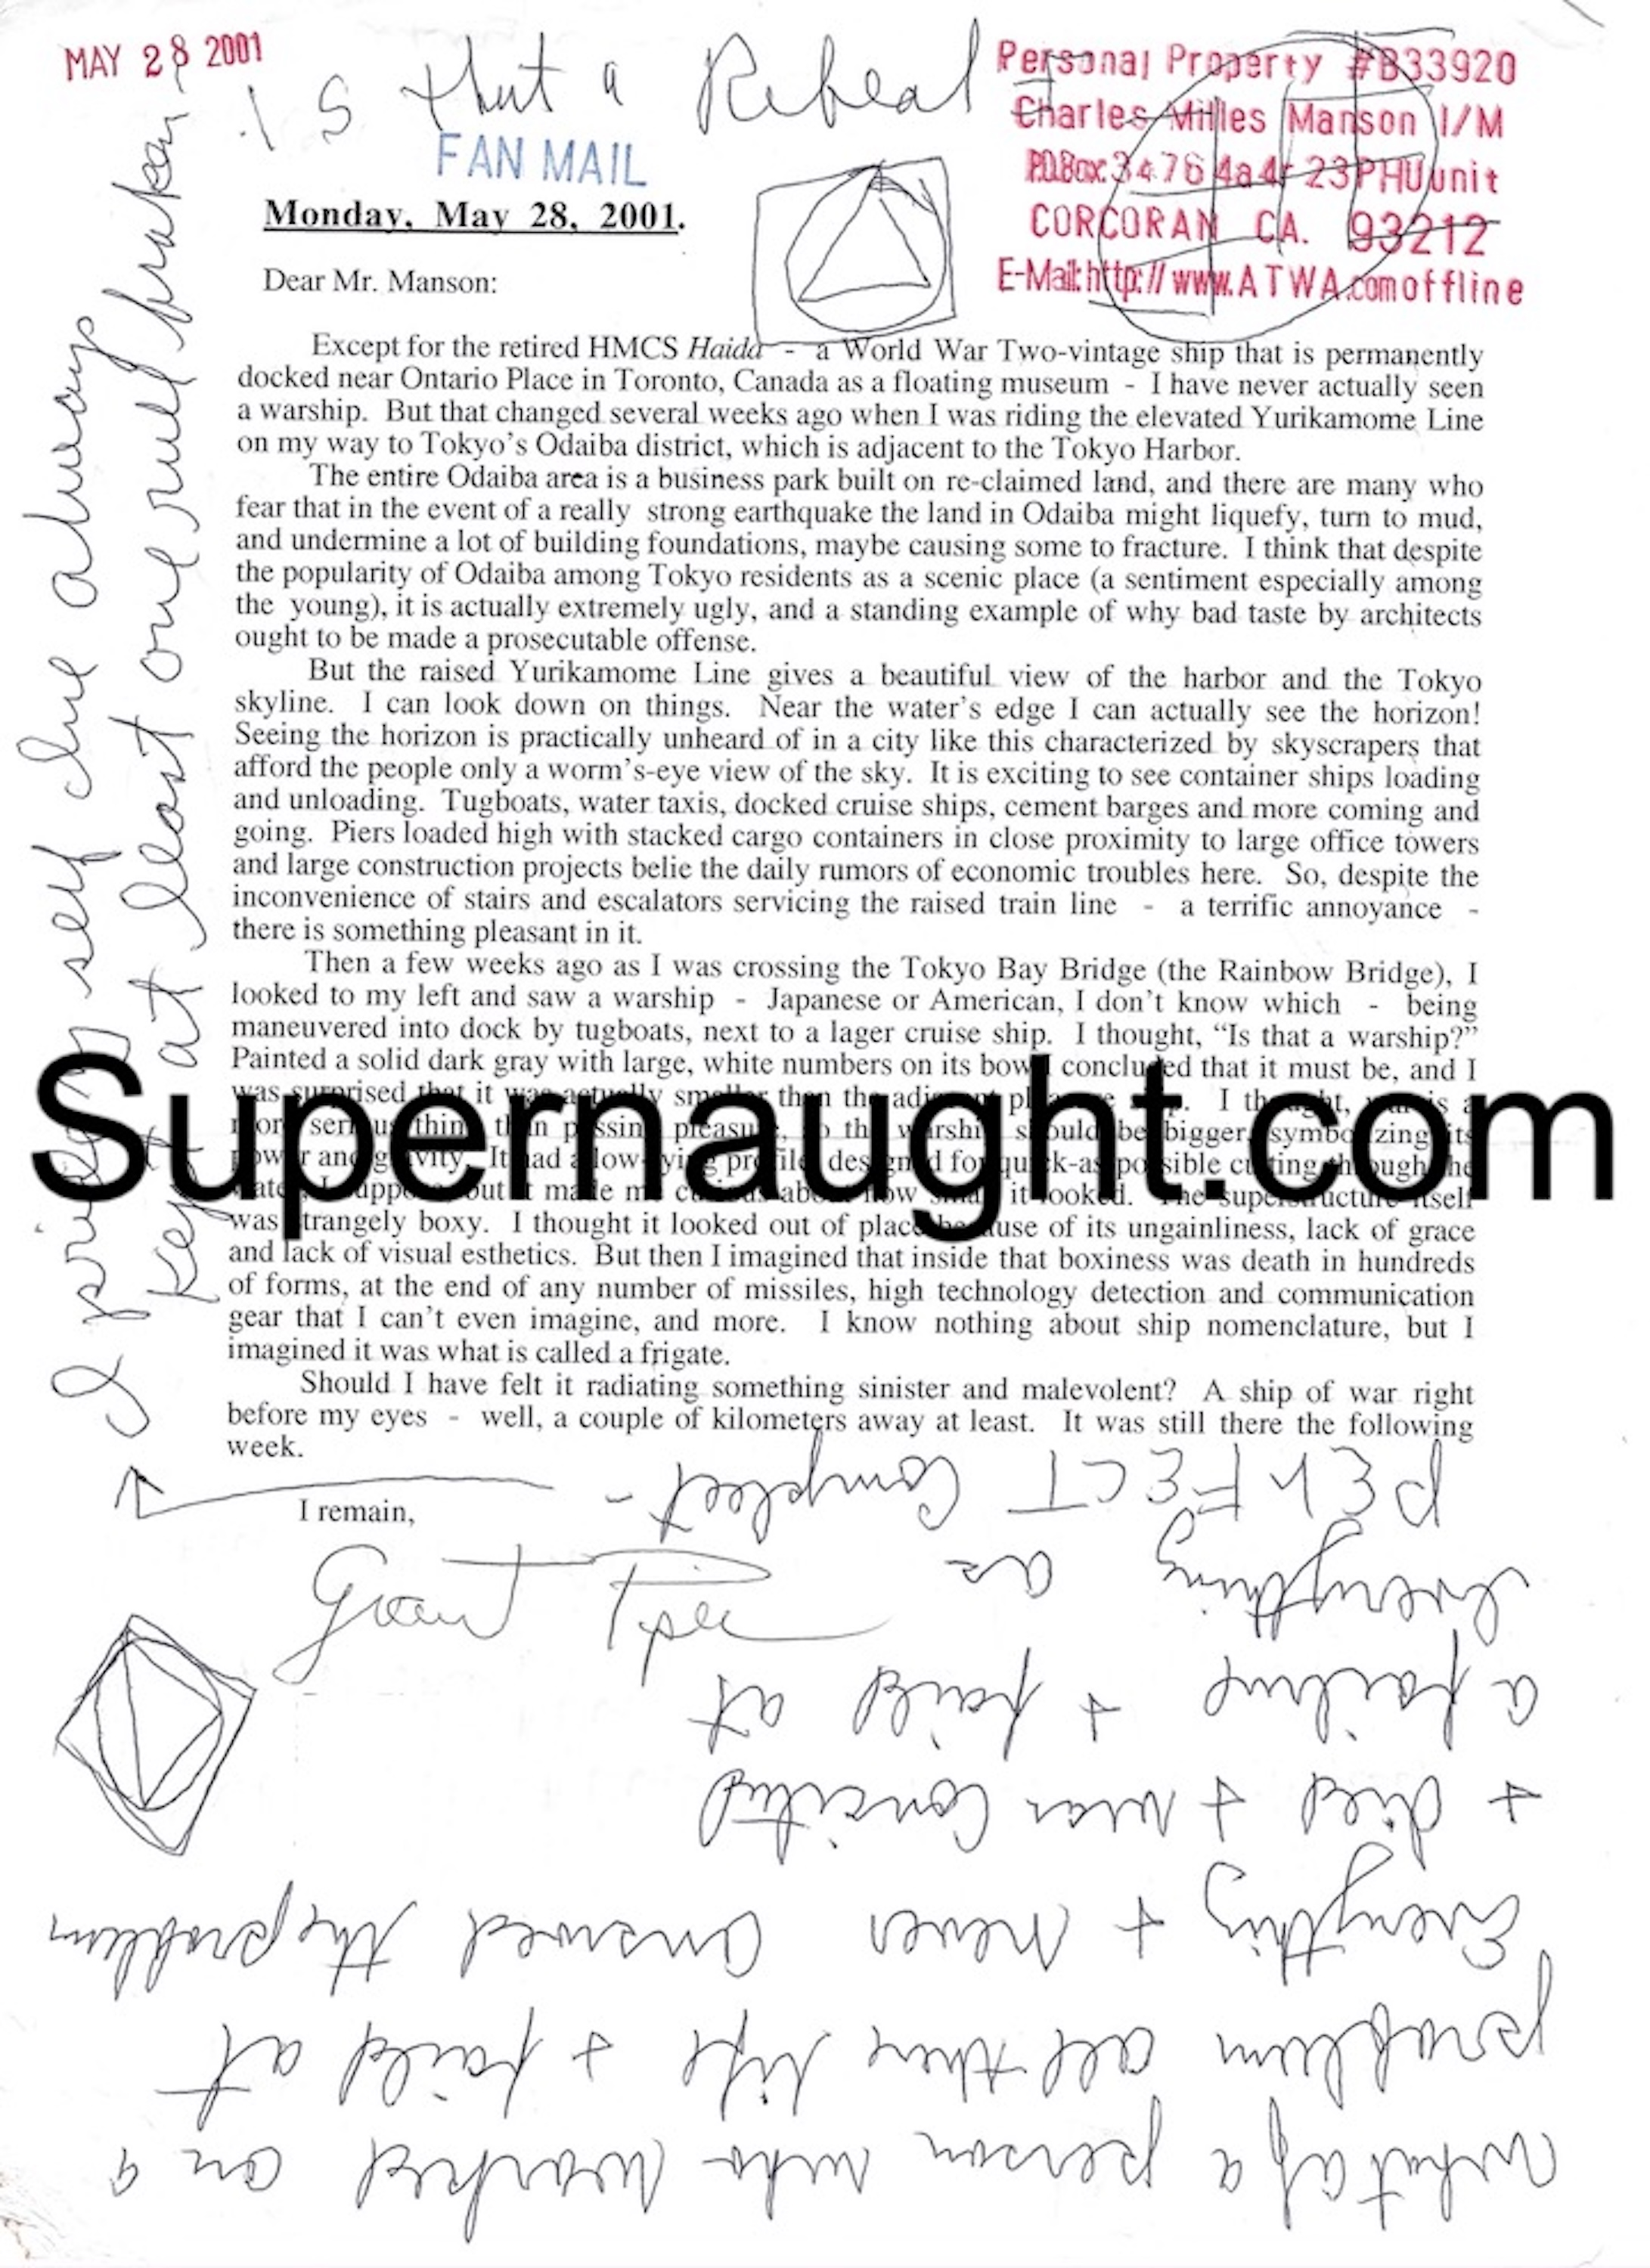 MAY 28 2001
Is that a Rebeal
FAN MAIL
Personal Property #B33920
Charles Milles Manson I/M
P.O.Box:3476 4a4r 23PHUunit
CORCORAN CA. 93212
E-Mail:http://www.ATWA.comoffline
Monday, May 28, 2001.
Dear Mr. Manson:
Except for the retired HMCS Haida - a World War Two-vintage ship that is permanently
docked near Ontario Place in Toronto, Canada as a floating museum - I have never actually seen
a warship. But that changed several weeks ago when I was riding the elevated Yurikamome Line
on my way to Tokyo's Odaiba district, which is adjacent to the Tokyo Harbor.
The entire Odaiba area is a business park built on re-claimed land, and there are many who
fear that in the event of a really strong earthquake the land in Odaiba might liquefy, turn to mud,
and undermine a lot of building foundations, maybe causing some to fracture. I think that despite
the popularity of Odaiba among Tokyo residents as a scenic place (a sentiment especially among
the young), it is actually extremely ugly, and a standing example of why bad taste by architects
ought to be made a prosecutable offense.
But the raised Yurikamome Line gives a beautiful view of the harbor and the Tokyo
skyline. I can look down on things. Near the water's edge I can actually see the horizon!
Seeing the horizon is practically unheard of in a city like this characterized by skyscrapers that
afford the people only a worm's-eye view of the sky. It is exciting to see container ships loading
and unloading. Tugboats, water taxis, docked cruise ships, cement barges and more coming and
going. Piers loaded high with stacked cargo containers in close proximity to large office towers
and large construction projects belie the daily rumors of economic troubles here. So, despite the
inconvenience of stairs and escalators servicing the raised train line - a terrific annoyance -
there is something pleasant in it.
Then a few weeks ago as I was crossing the Tokyo Bay Bridge (the Rainbow Bridge), I
looked to my left and saw a warship - Japanese or American, I don't know which - being
maneuvered into dock by tugboats, next to a lager cruise ship. I thought, "Is that a warship?"
Painted a solid dark gray with large, white numbers on its bow I concluded that it must be, and I
was surprised that it was actually smaller than the adjacent pleasure ship. I thought, war is a
more serious thing than passing pleasure, so the warship should be bigger, symbolizing its
power and gravity. It had a low-lying profile designed for quick-as-possible cutting through the
water I suppose, but it made me curious about how small it looked. The superstructure itself
was strangely boxy. I thought it looked out of place because of its ungainliness, lack of grace
and lack of visual esthetics. But then I imagined that inside that boxiness was death in hundreds
of forms, at the end of any number of missiles, high technology detection and communication
gear that I can't even imagine, and more. I know nothing about ship nomenclature, but I
imagined it was what is called a frigate.
Should I have felt it radiating something sinister and malevolent? A ship of war right
before my eyes - well, a couple of kilometers away at least. It was still there the following
week.
I remain,
Grant
What of a person who worked on a
problem all there life + faild at
Everything + never answed the problem
+ died + was Consited
a failure + faild at
Everything as
PERFECT Compleet -
I my self Ive always
Kept at least one rule
Supernaught.com